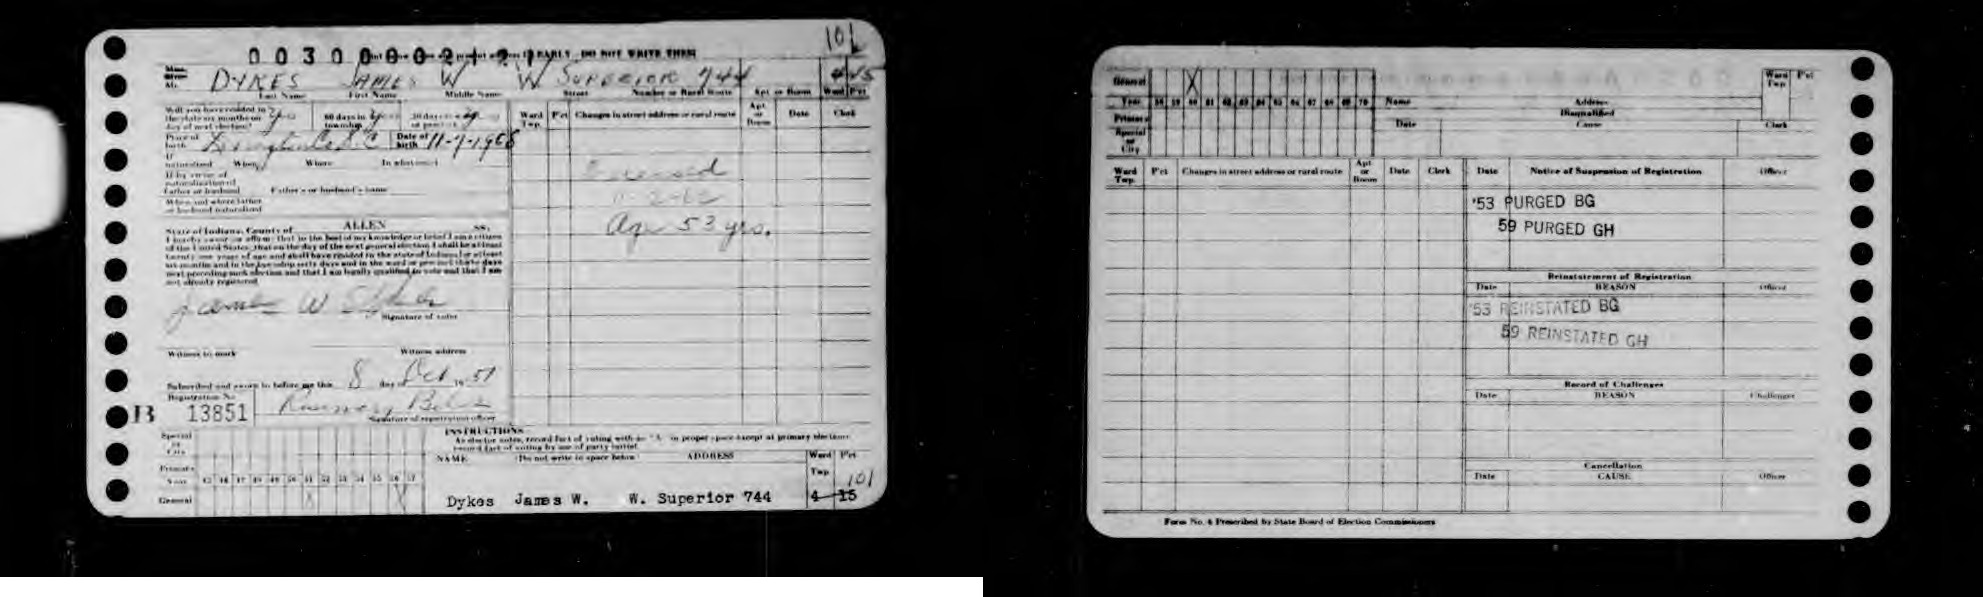 101
0030000212
EARLY DO NOT WRITE THEM
DYKES JAMES W W SUPERIOR 744 4 15
Last Name First Name Middle Name Street Number or Rural Route Apt or Room Ward Pct
Will you have resided in the state six months on day of next election? yes 60 days in township
Place of birth Date of birth 11-7-1908
If naturalized When Where In what court
If by virtue of naturalization of father or husband Father's or husband's name
When and where father or husband naturalized
State of Indiana, County of ALLEN ss.
I hereby swear or affirm that to the best of my knowledge or belief I am a citizen
of the United States, that on the day of the next general election I shall be at least
twenty-one years of age and shall have resided in the state of Indiana for at least
six months and in the township sixty days and in the ward or precinct thirty days
next preceding such election and that I am legally qualified to vote and that I am
not already registered
James W Dykes
Signature of voter
Witness to mark Witness address
Subscribed and sworn to before me this 8 day of Oct 19 51
Registration No
B 13851
Signature of registration officer
Ward Twp. Pct Changes in street address or rural route Apt or Room Date Clerk
Deceased
Age 53 yrs.
INSTRUCTIONS
As elector votes, record fact of voting with an "X" in proper space except at primary elections
record fact of voting by use of party initial
NAME (Do not write in space below) ADDRESS Ward Twp Pct
Special or City
Primary
Year 45 46 47 48 49 50 51 52 53 54 55 56 57
General X X
101
Dykes James W. W. Superior 744 4 15
General X
Year 58 59 60 61 62 63 64 65 66 67 68 69 70
Primary
Special or City
Name Address Ward Twp Pct
Disqualified
Date Cause Clerk
Ward Twp. Pct Changes in street address or rural route Apt or Room Date Clerk
Date Notice of Suspension of Registration Officer
'53 PURGED BG
59 PURGED GH
Reinstatement of Registration
Date REASON Officer
'53 REINSTATED BG
59 REINSTATED GH
Record of Challenges
Date REASON Challenger
Cancellation
Date CAUSE Officer
Form No. 4 Prescribed by State Board of Election Commissioners